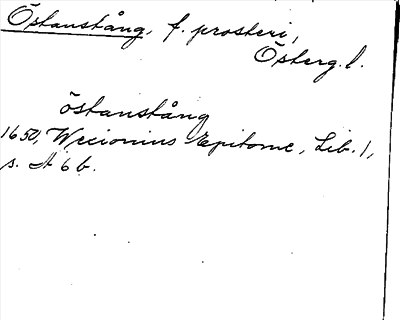 Östanstång, f. prosteri,
Österg. l.
östanstång
1650, Wexionius Epitome, Lib. 1,
s. A 6 b.